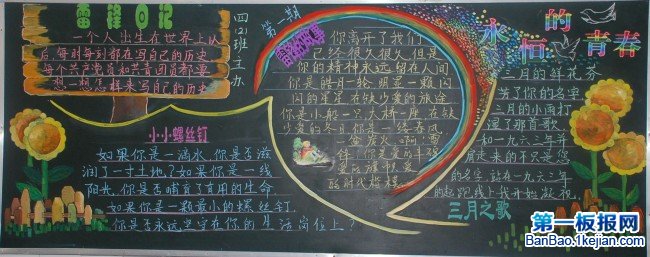 雷锋日记
一个人出生在世界上以
后,每时每刻都在写自己的历史
每个共产党员和共青团员都要
想一想怎样来写自己的历史
四(2)班主办
第一期
小小螺丝钉
如果你是一滴水,你是否滋
润了一寸土地?如果你是一线
阳光,你是否哺育了有用的生命
如果你是一颗最小的螺丝钉,
你是否永远坚守在你的生活岗位上?
你离开了我们
已经很久很久,但是
你的精神永远留在人间
你是皓月一轮,明星一颗闪
闪的星星在铁少
你是小船一只,大桥一座,在铁
的冬日,你是一缕春风
一盆炭火,啊!雷
锋!你是
时代楷模
永恒的青春
三月的鲜花芬
芳了你的名字
三月的小雨打
湿了那首歌
和一九六三年并
肩走来的不只是您
的名字,站在一九六三年
的起跑线上我开始凝视
三月之歌
第一板报网
BanBao.1kejian.com